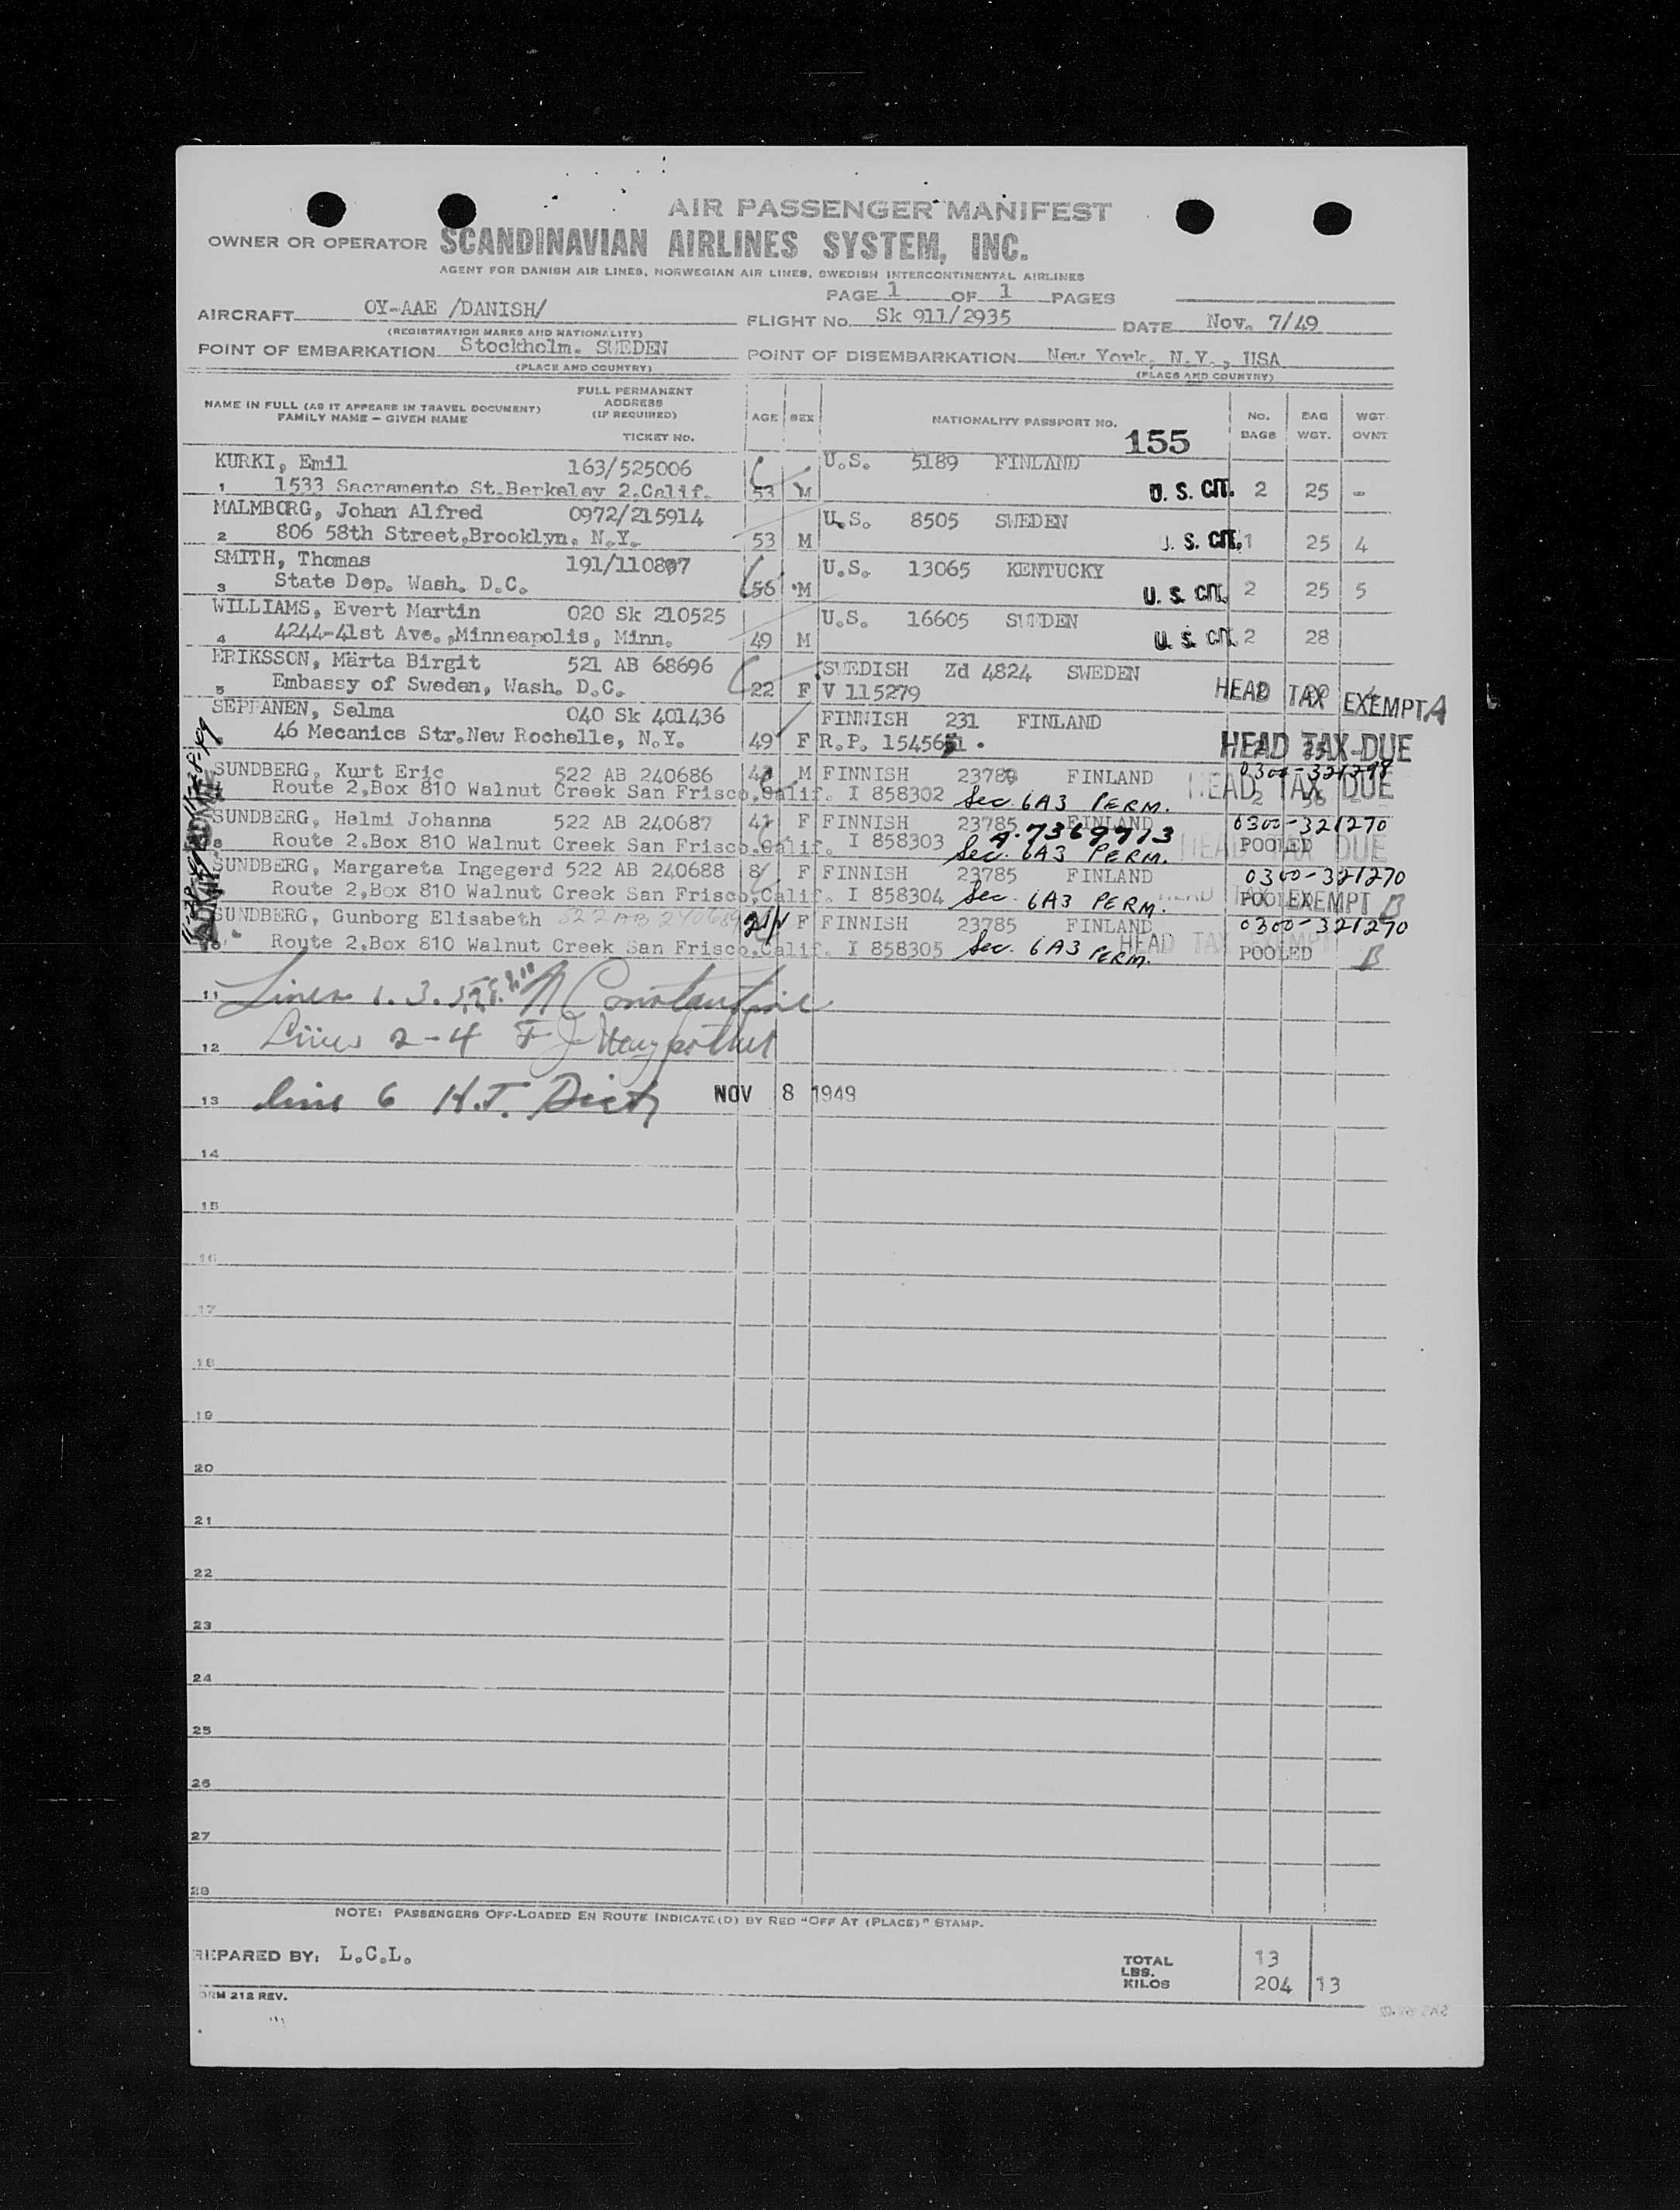 AIR PASSENGER MANIFEST
OWNER OR OPERATOR SCANDINAVIAN AIRLINES SYSTEM, INC.
AGENT FOR DANISH AIR LINES, NORWEGIAN AIR LINES, SWEDISH INTERCONTINENTAL AIRLINES
PAGE 1 OF 1 PAGES
AIRCRAFT OY-AAE /DANISH/ FLIGHT No. Sk 911/2935 DATE Nov. 7/49
(REGISTRATION MARKS AND NATIONALITY)
POINT OF EMBARKATION Stockholm. SWEDEN POINT OF DISEMBARKATION New York, N.Y., USA
(PLACE AND COUNTRY) (PLACE AND COUNTRY)
NAME IN FULL (AS IT APPEARS IN TRAVEL DOCUMENT) FAMILY NAME – GIVEN NAME FULL PERMANENT ADDRESS (IF REQUIRED) TICKET NO. AGE SEX NATIONALITY PASSPORT NO. 155 No. BAGS BAG WGT. WGT. OVNT
KURKI, Emil 163/525006 U.S. 5189 FINLAND
1 1533 Sacramento St.Berkeley 2.Calif. 53 M U. S. CIT. 2 25 -
MALMBORG, Johan Alfred 0972/215914 U.S. 8505 SWEDEN
2 806 58th Street,Brooklyn, N.Y. 53 M U. S. CIT. 1 25 4
SMITH, Thomas 191/110807 U.S. 13065 KENTUCKY
3 State Dep. Wash. D.C. 56 M U. S. CIT. 2 25 5
WILLIAMS, Evert Martin 020 Sk 210525 U.S. 16605 SWEDEN
4 4244-41st Ave.,Minneapolis, Minn. 49 M U. S. CIT. 2 28
ERIKSSON, Märta Birgit 521 AB 68696 SWEDISH Zd 4824 SWEDEN
5 Embassy of Sweden, Wash. D.C. 22 F V 115279 HEAD TAX EXEMPT A
SEPPANEN, Selma 040 Sk 401436 FINNISH 231 FINLAND
46 Mecanics Str.New Rochelle, N.Y. 49 F R.P. HEAD TAX DUE
SUNDBERG, Kurt Eric 522 AB 240686 M FINNISH FINLAND 0300-321298
Route 2,Box 810 Walnut Creek San Frisco,Calif. I 858302 Sec. 6A3 PERM. HEAD TAX DUE
SUNDBERG, Helmi Johanna 522 AB 240687 41 F FINNISH 23785 FINLAND 0300-321270
8 Route 2,Box 810 Walnut Creek San Frisco,Calif. I 858303 A-7369713 Sec. 6A3 PERM. HEAD TAX DUE POOLED
SUNDBERG, Margareta Ingegerd 522 AB 240688 8 F FINNISH 23785 FINLAND 0300-321270
Route 2,Box 810 Walnut Creek San Frisco,Calif. I 858304 Sec. 6A3 PERM. HEAD TAX EXEMPT B POOLED
SUNDBERG, Gunborg Elisabeth 522 AB 240689 F FINNISH 23785 FINLAND 0300-321270
Route 2,Box 810 Walnut Creek San Frisco,Calif. I 858305 Sec. 6A3 PERM. HEAD TAX EXEMPT POOLED B
11 Lines 1. 3. Constantine
12 Lines 2-4 F J
13 line 6 H.J. NOV 8 1949
14
15
16
17
18
19
20
21
22
23
24
25
26
27
28
NOTE: PASSENGERS OFF-LOADED EN ROUTE INDICATE(D) BY RED "OFF AT (PLACE)" STAMP.
REPARED BY: L.C.L. TOTAL 13
LBS.
KILOS 204 13
ORM 212 REV.